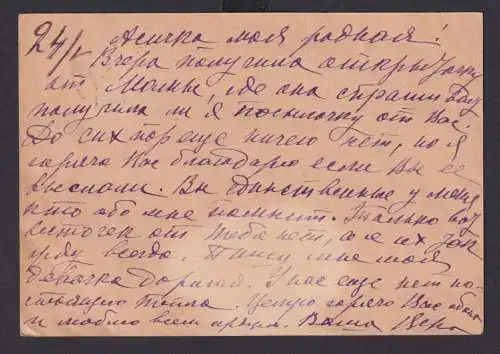 24/V Асичка моя родная!
Вчера получила открыточку
от Мамы, где она спрашивает
получила ли я посылочку от Вас.
До сих пор еще ничего нет, но я
горячо Вас благодарю если Вы ее
выслали. Вы единственные у меня
кто обо мне помнит. Только
весточек от тебя нет, а я их так
жду всегда. Пиши мне моя
девочка дорогая. У нас еще нет
тепла. Целую горячо Вас
и люблю всей душой. Ваша Вера